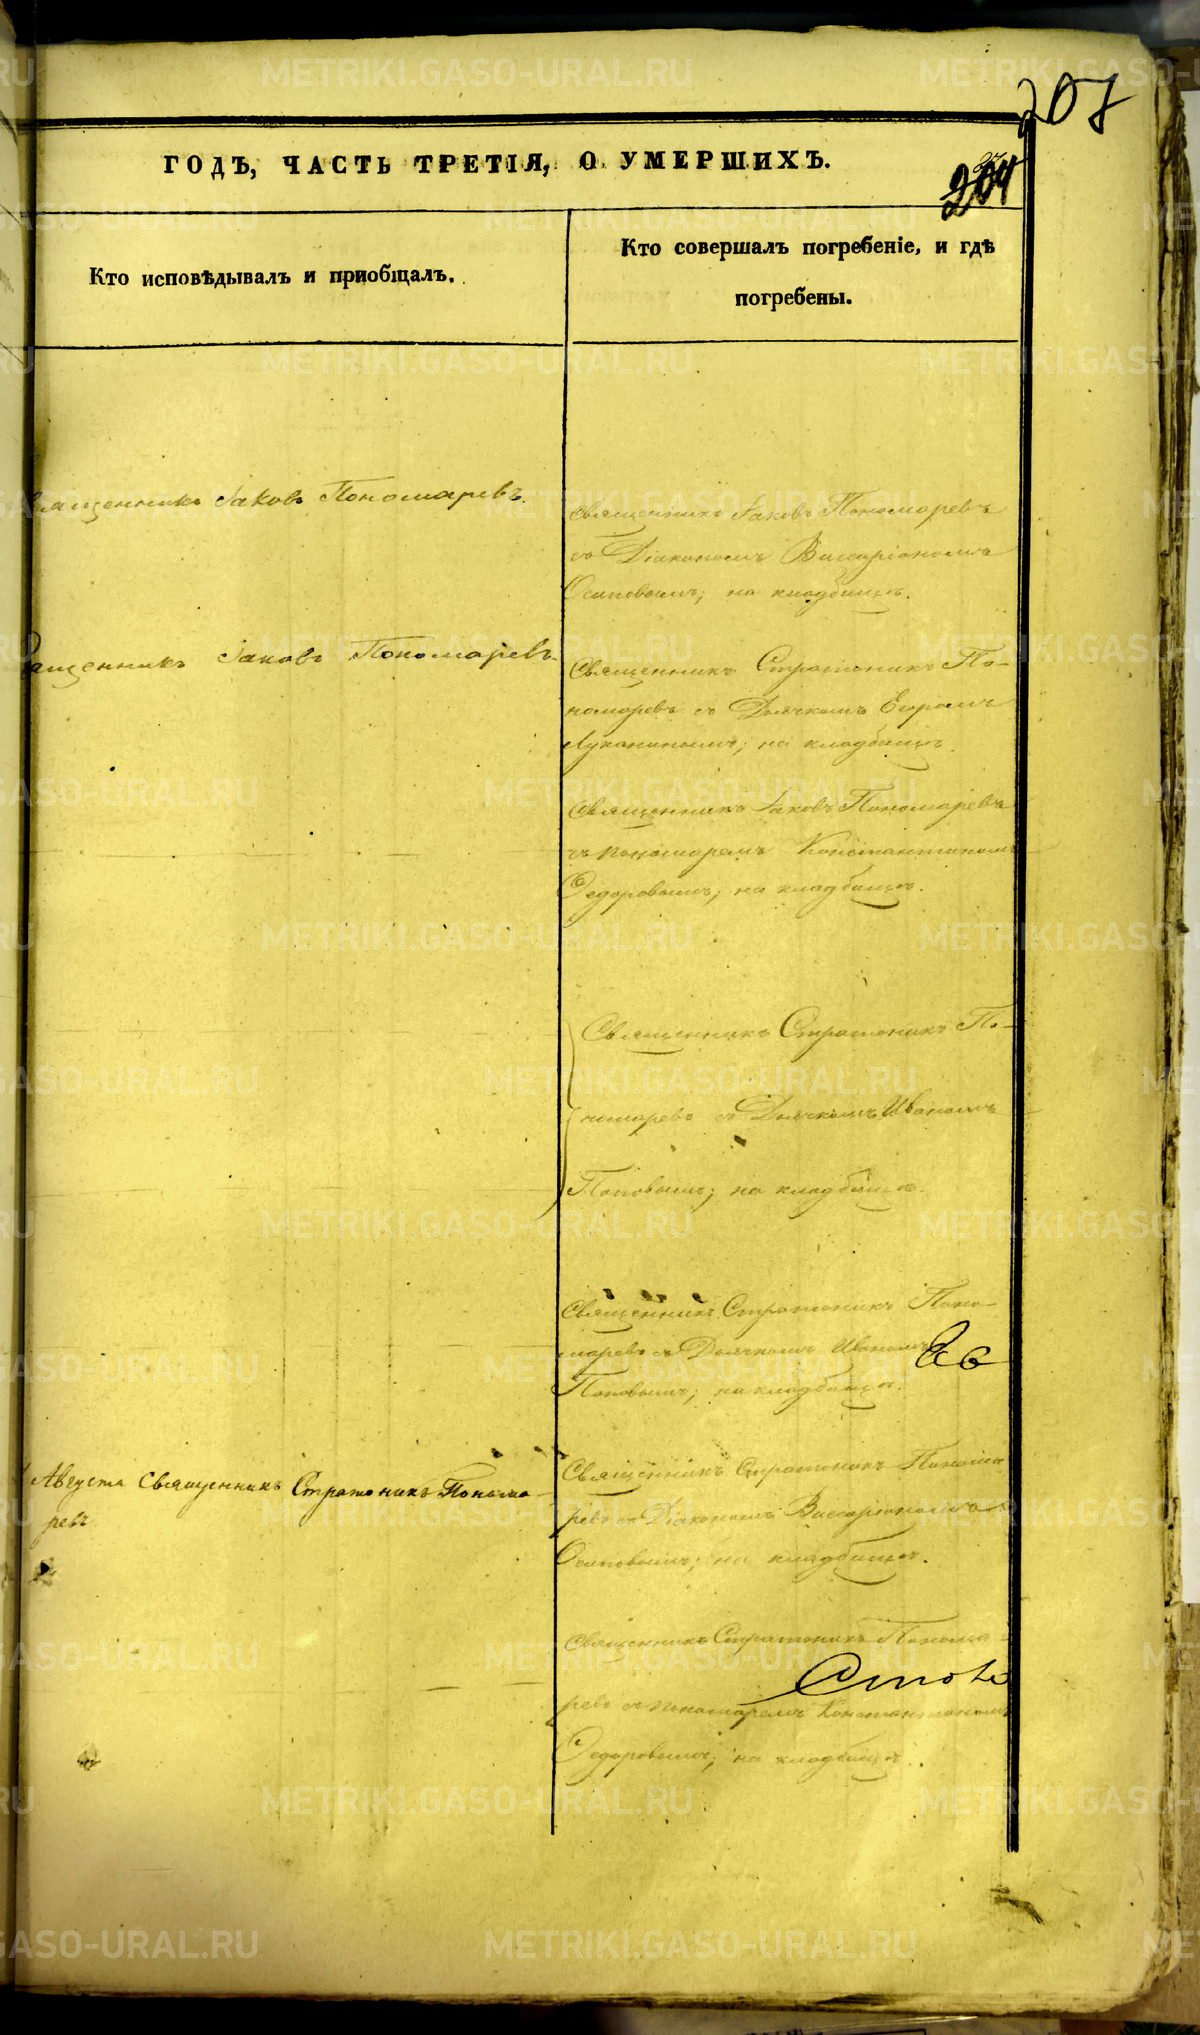 207
ГОДЪ, ЧАСТЬ ТРЕТІЯ, О УМЕРШИХЪ.
204
Кто исповѣдывалъ и пріобщалъ.
Кто совершалъ погребеніе, и гдѣ
погребены.
Священникъ Іаковъ Пономаревъ.
Священникъ Іаковъ Пономаревъ
съ Діакономъ Виссаріономъ
Осиповымъ; на кладбищѣ.
Священникъ Іаковъ Пономаревъ.
Священникъ Стратоникъ По-
номаревъ съ Дьячкомъ Егоромъ
Лукановымъ; на кладбищѣ.
Священникъ Іаковъ Пономаревъ
съ пономаремъ Константиномъ
Федоровымъ; на кладбищѣ.
Священникъ Стратоникъ По-
номаревъ съ Дьячкомъ Иваномъ
Поповымъ; на кладбищѣ.
Священникъ Стратоникъ Поно-
маревъ съ Дьячкомъ Иваномъ
Поповымъ; на кладбищѣ.
Августа Священникъ Стратоникъ Понома-
ревъ
Священникъ Стратоникъ Понома
ревъ съ Діакономъ Виссаріономъ
Осиповымъ; на кладбищѣ.
Священникъ Стратоникъ Понома-
ревъ съ пономаремъ Константиномъ
Федоровымъ; на кладбищѣ.
METRIKI.GASO-URAL.RU